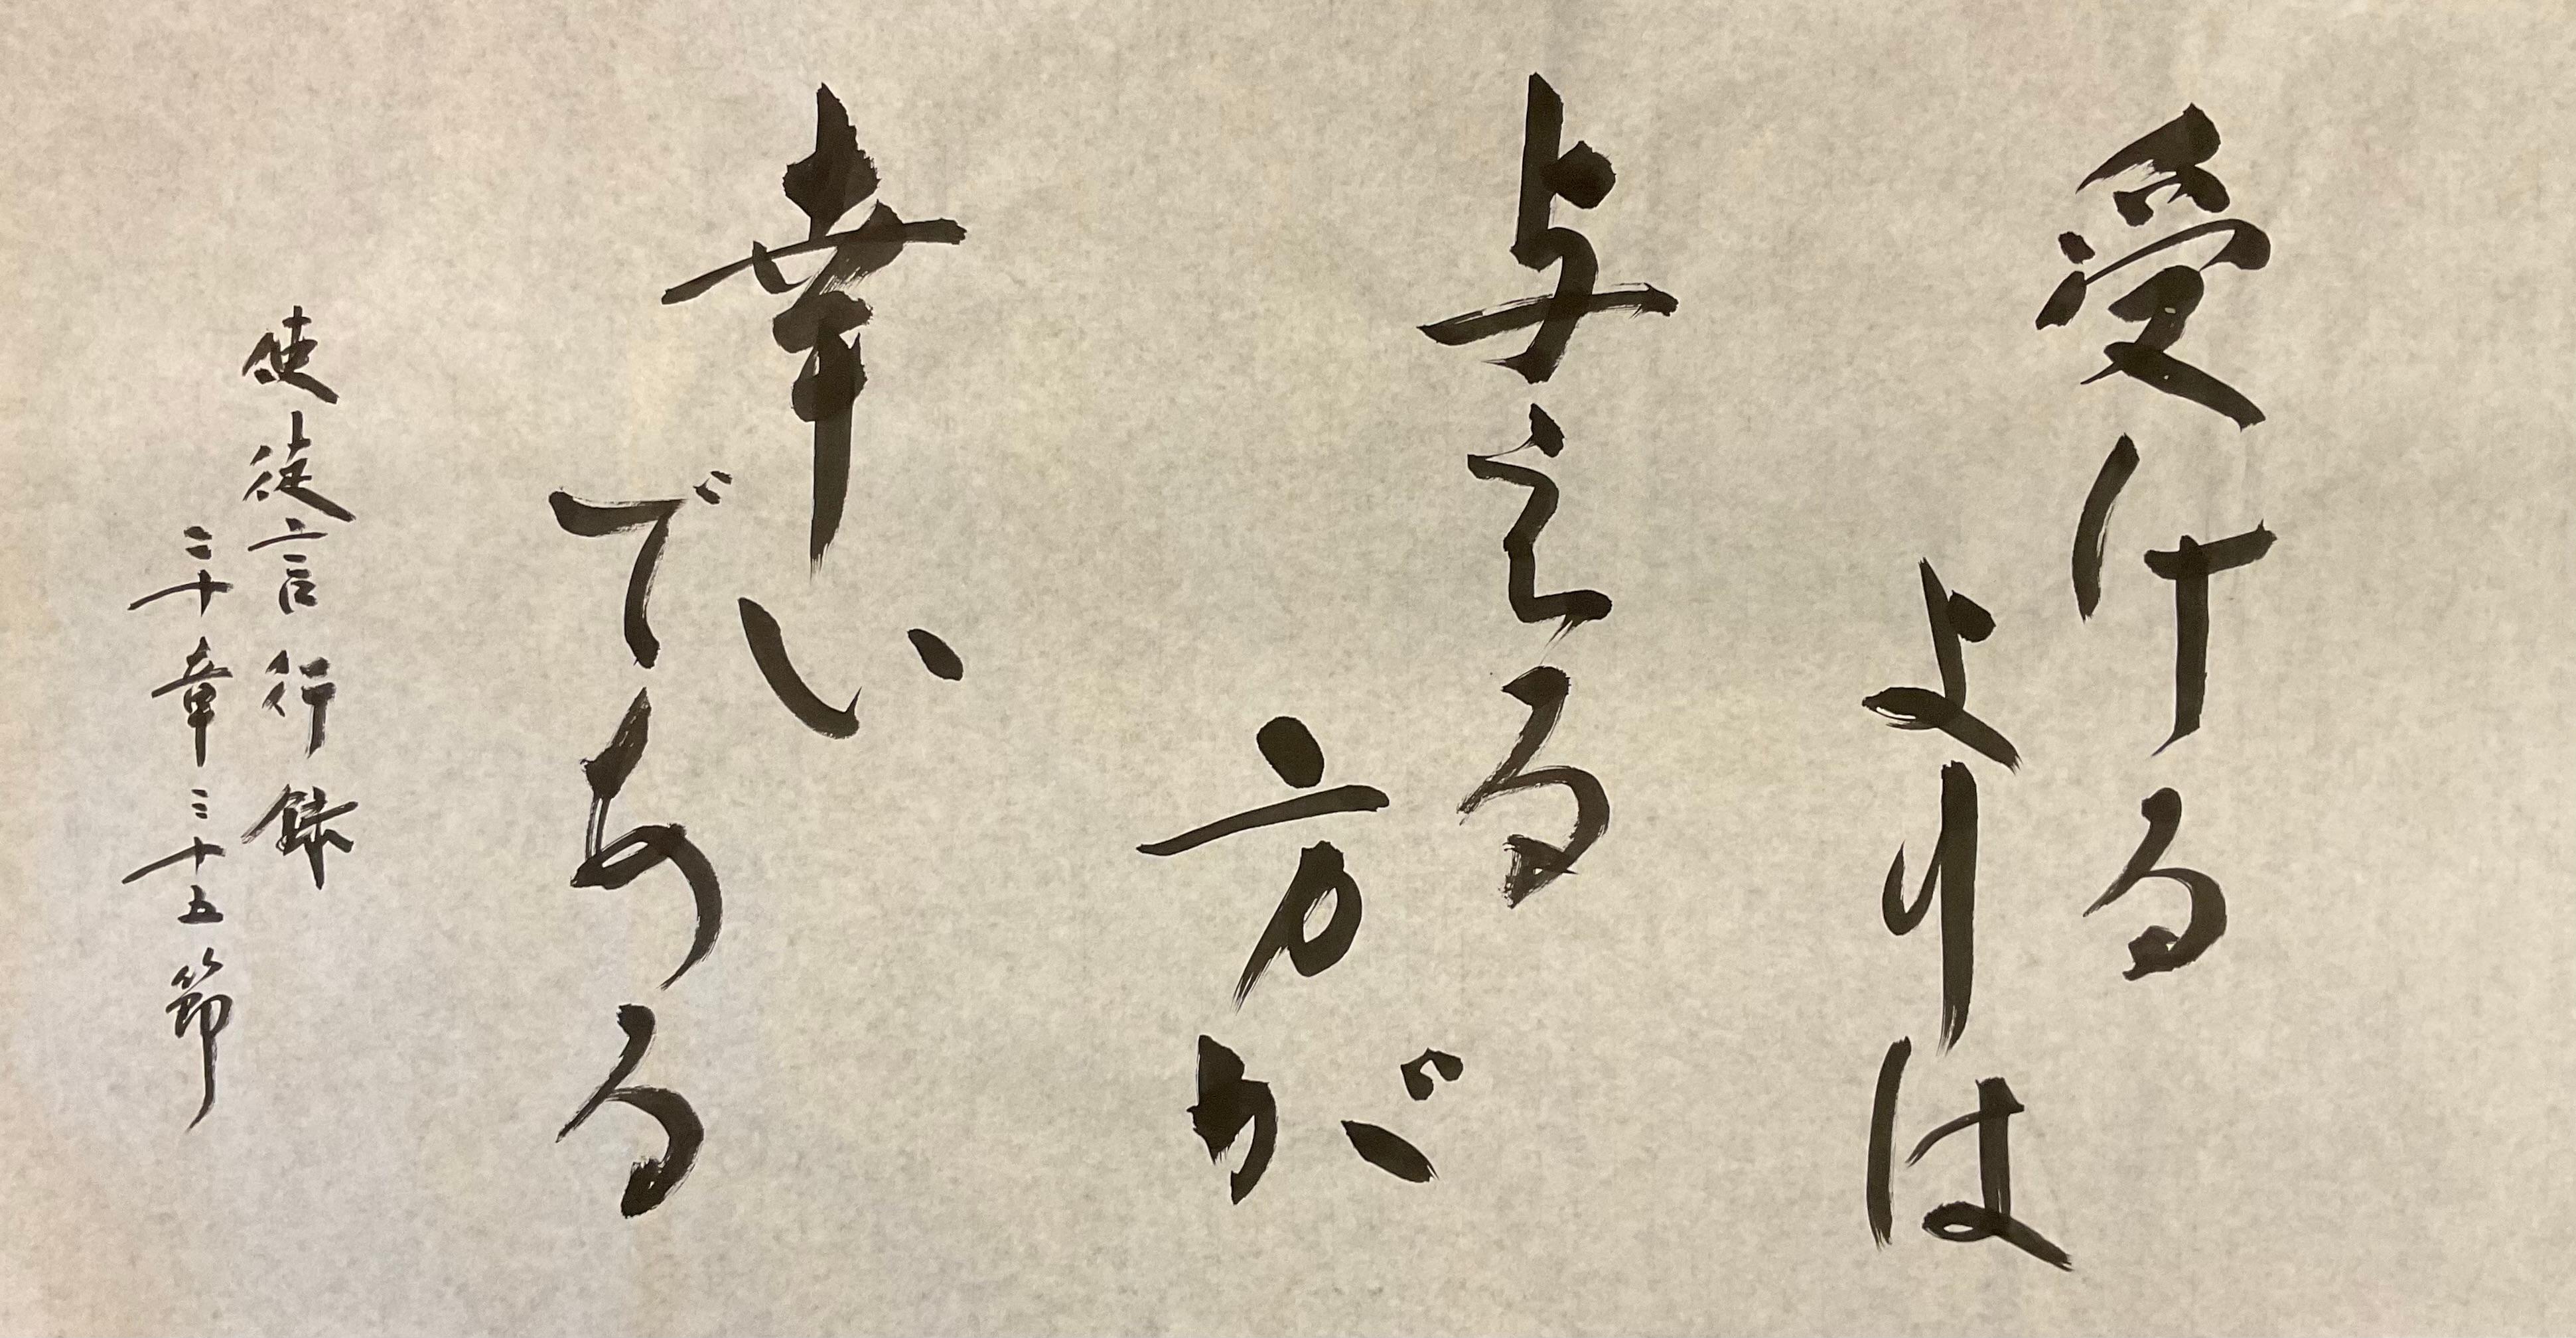 受ける
よりは
与える
方が
幸い
である
使徒言行録
二十章三十五節